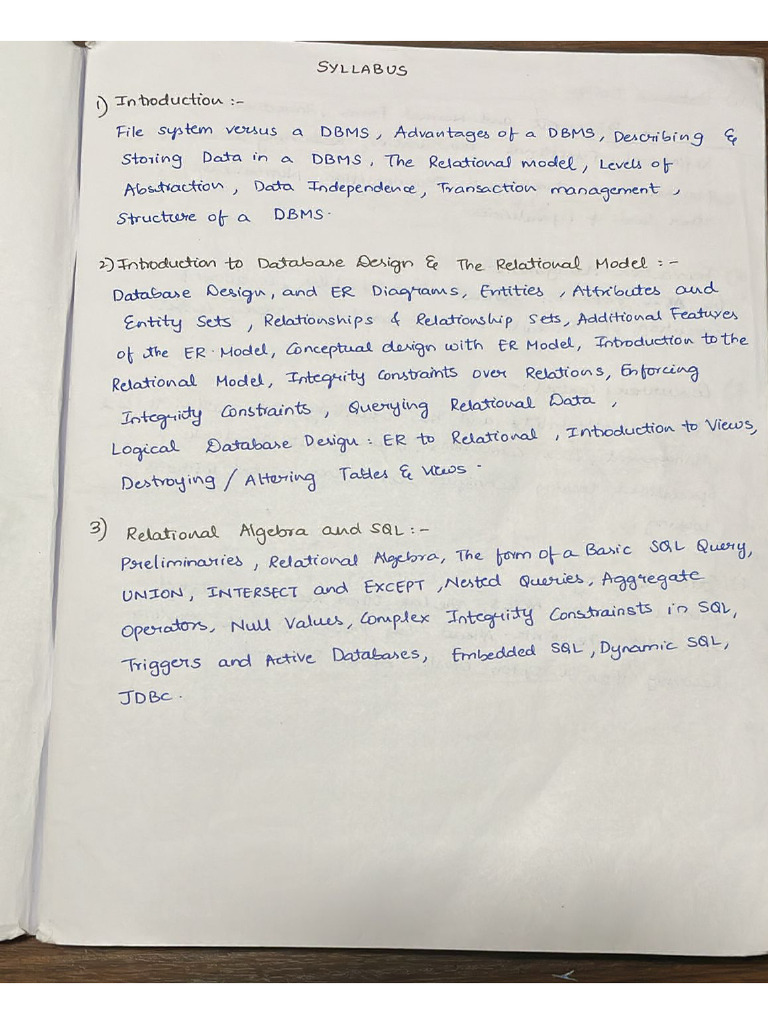 SYLLABUS
1) Introduction :-
File system versus a DBMS, Advantages of a DBMS, Describing &
Storing Data in a DBMS, The Relational model, Levels of
Abstraction, Data Independence, Transaction management,
Structure of a DBMS.
2) Introduction to Database Design & The Relational Model :-
Database Design, and ER Diagrams, Entities, Attributes and
Entity Sets, Relationships & Relationship Sets, Additional Features
of the ER Model, Conceptual design with ER Model, Introduction to the
Relational Model, Integrity Constraints over Relations, Enforcing
Integrity Constraints, Querying Relational Data,
Logical Database Design: ER to Relational, Introduction to Views,
Destroying / Altering Tables & Views.
3) Relational Algebra and SQL :-
Preliminaries, Relational Algebra, The form of a Basic SQL Query,
UNION, INTERSECT and EXCEPT, Nested Queries, Aggregate
Operators, Null Values, Complex Integrity Constrainsts in SQL,
Triggers and Active Databases, Embedded SQL, Dynamic SQL,
JDBC.